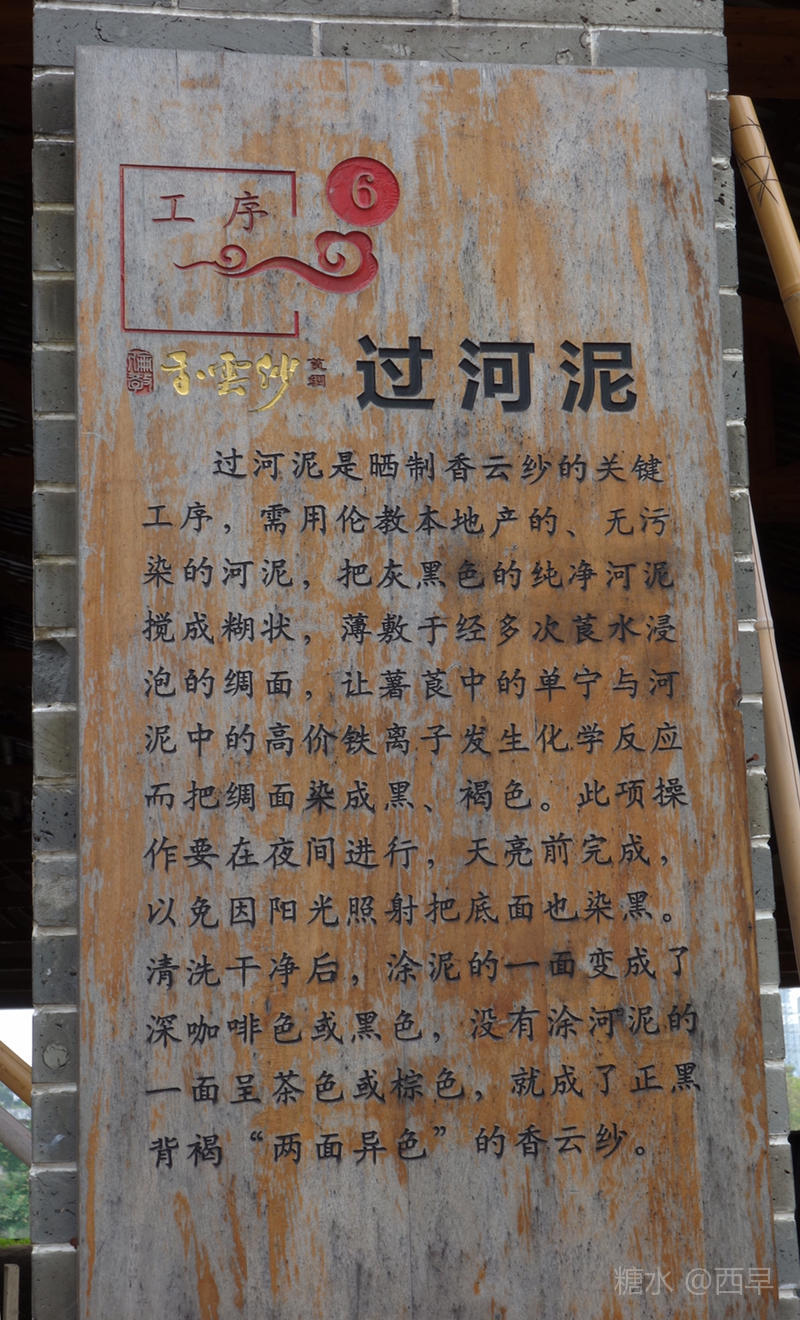 工序
6
香雲紗
过河泥
过河泥是晒制香云纱的关键
工序，需用伦教本地产的、无污
染的河泥，把灰黑色的纯净河泥
搅成糊状，薄敷于经多次莨水浸
泡的绸面，让薯莨中的单宁与河
泥中的高价铁离子发生化学反应
而把绸面染成黑、褐色。此项操
作要在夜间进行，天亮前完成，
以免因阳光照射把底面也染黑。
清洗干净后，涂泥的一面变成了
深咖啡色或黑色，没有涂河泥的
一面呈茶色或棕色，就成了正黑
背褐“两面异色”的香云纱。
糖水 @西早